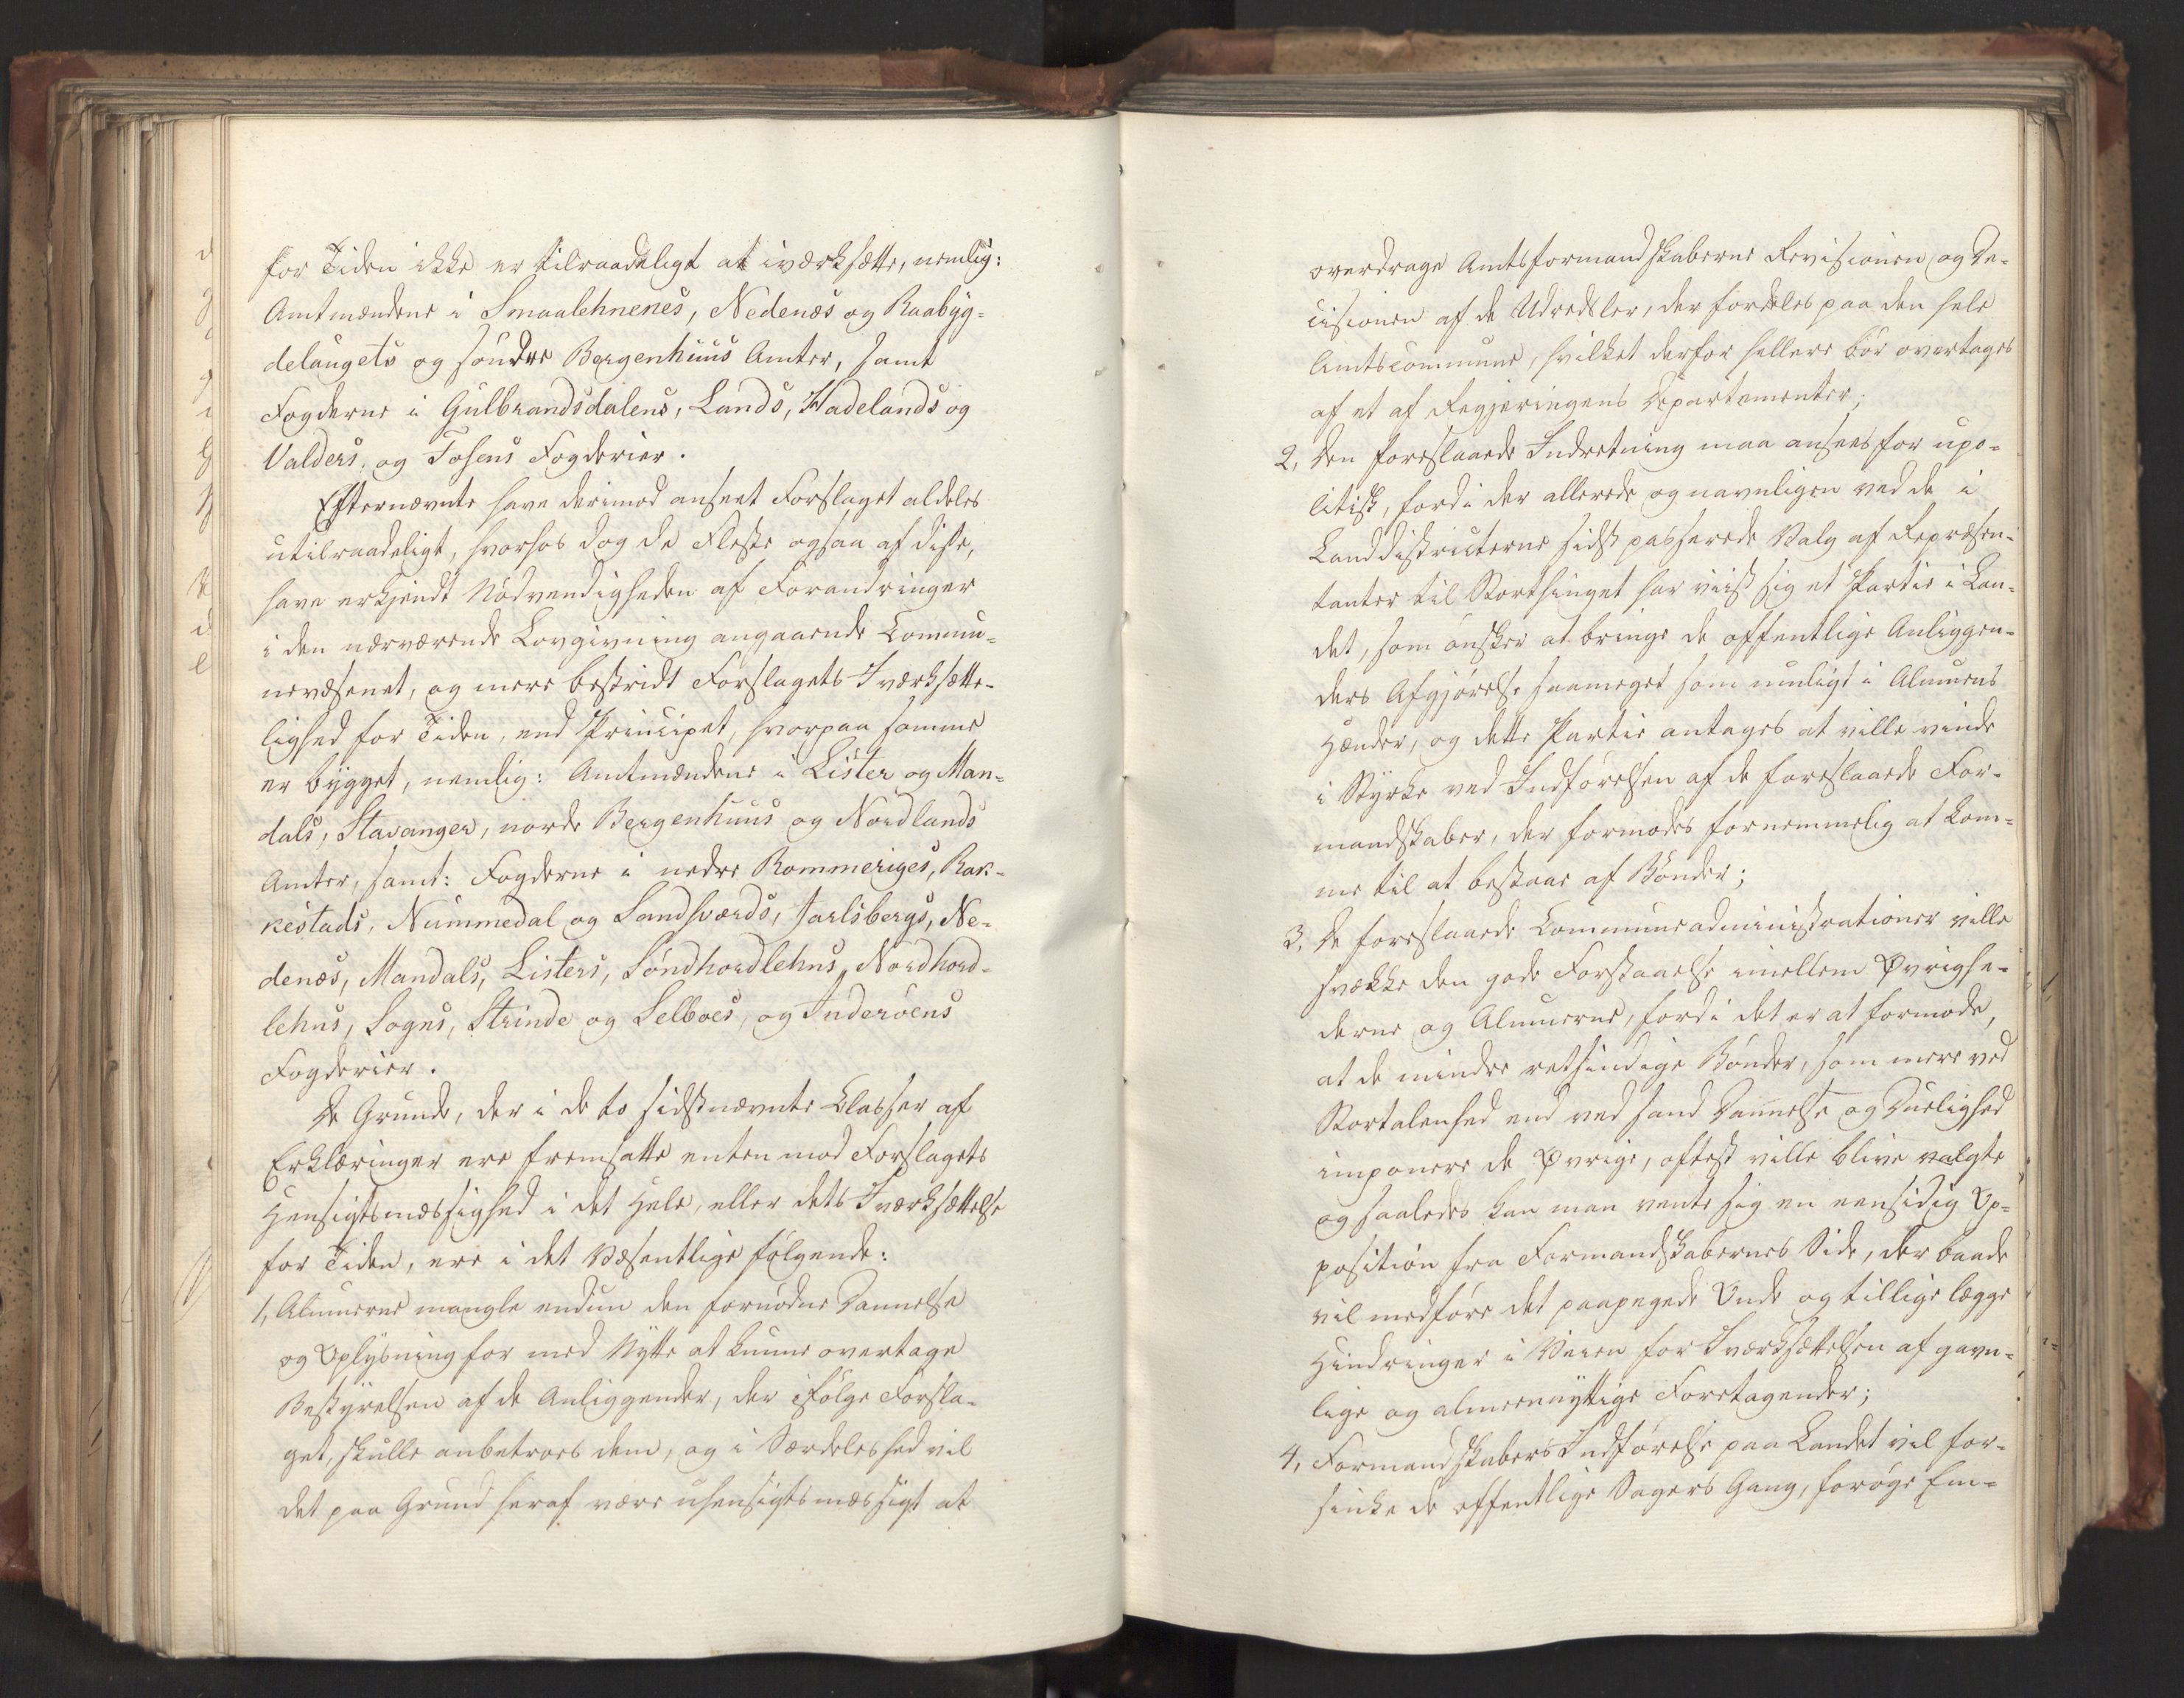 for Tiden ikke er tilraadeligt at iværksætte, nemlig:
Amtmændene i Smaalehnenes, Nedenæs og Raabyg-
delaugets og søndre Bergenhuus Amter, samt
Fogderne i Gulbrandsdalens, Lands, Hadelands og
Valders, og Fosens Fogderier.
Efternævnte have derimod anseet Forslaget aldeles
utilraadeligt, hvorhos dog de Fleste ogsaa af disse,
have erkjendt Nødvendigheden af Forandringer
i den nærværende Lovgivning angaaende Commu-
nevæsenet, og mere bestridt Forslagets Iværksætte-
lighed for Tiden, end Principet, hvorpaa samme
er bygget, nemlig: Amtmændene i Lister og Man-
dals, Stavanger, nordre Bergenhuus og Nordlands
Amter, samt: Fogderne i nedre Rommeriges, Rak-
kestads, Nummedal og Sandsværds, Jarlsbergs, Ne-
denæs, Mandals, Listers, Søndhordlehns, Nordhord-
lehns, Sogns, Strinde og Selboes, og Inderøens
Fogderier.
De Grunde, der i de to sidstnævnte Classer af
Erklæringer ere fremsatte enten mod Forslagets
Hensigtsmæssighed i det Hele, eller dets Iværksættelse
for Tiden, ere i det Væsentlige følgende:
1, Almuerne mangle endnu den fornødne Dannelse
og Oplysning for med Nytte at kunne overtage
Bestyrelsen af de Anliggender, der ifølge Forsla-
get, skulle anbetroes dem, og i Særdeleshed vil
det paa Grund heraf være uhensigtsmæssigt at
overdrage Amtsformandskaberne Revisionen og De-
cisionen af de Udredsler, der fordeles paa den hele
Amtscommune, hvilket derfor hellere bør overtages
af et af Regjeringens Departementer;
2, Den foreslaaede Indretning maa ansees for upo-
litisk, fordi der allerede og navnligen ved de i
Landdistricterne sidst passerede Valg af Repræsen-
tanter til Storthinget har viist sig et Partie i Lan-
det, som ønsker at bringe de offentlige Anliggen-
ders Afgjørelse saameget som muligt i Almuens
Hænder, og dette Partie antages at ville vinde
i Styrke ved Indførelsen af de foreslaaede For-
mandskaber, der formodes fornemmelig at kom-
me til at bestaae af Bønder;
3, De foreslaaede Communeadministrationer ville
svække den gode Forstaaelse imellem Øvrighe-
derne og Almuerne, fordi det er at formode,
at de mindre retsindige Bønder, som mere ved
Stortalenhed end ved sand Dannelse og Duelighed
imponere de Øvrige, oftest ville blive valgte
og saaledes kan man vente sig en eensidig Op-
position fra Formandskabernes Side, der baade
vil medføre det paapegede Onde og tillige lægge
Hindringer i Veien for Iværksættelsen af gavn-
lige og almeennyttige Foretagender;
4, Formandskabers Indførelse paa Landet vil for-
sinke de offentlige Sagers Gang, forøge Em-